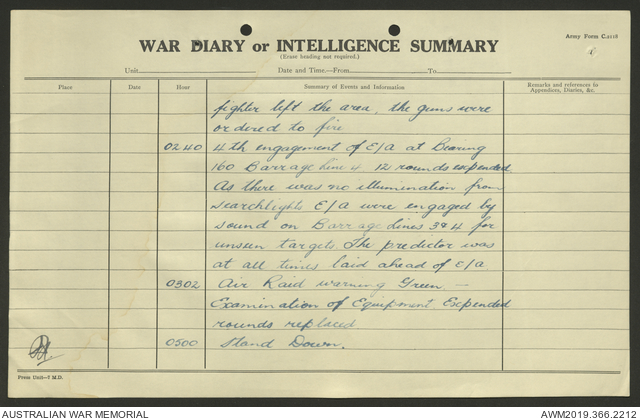 Army Form C.2118
WAR DIARY or INTELLIGENCE SUMMARY
(Erase heading not required.)
Unit Date and Time.—From To
Place Date Hour Summary of Events and Information Remarks and references to Appendices, Diaries, &c.
fighter left the area, the guns were
ordered to fire
0240 4th engagement of E/A at Bearing
160 Barrage Line 4 12 rounds expended
As there was no illumination from
searchlights E/A were engaged by
sound on Barrage Lines 3 & 4 for
unseen targets. The predictor was
at all times laid ahead of E/A
0302 Air Raid warning Green. —
Examination of Equipment Expended
rounds replaced
0500 Stand Down.
Press Unit—7 M.D.
AUSTRALIAN WAR MEMORIAL AWM2019.366.2212